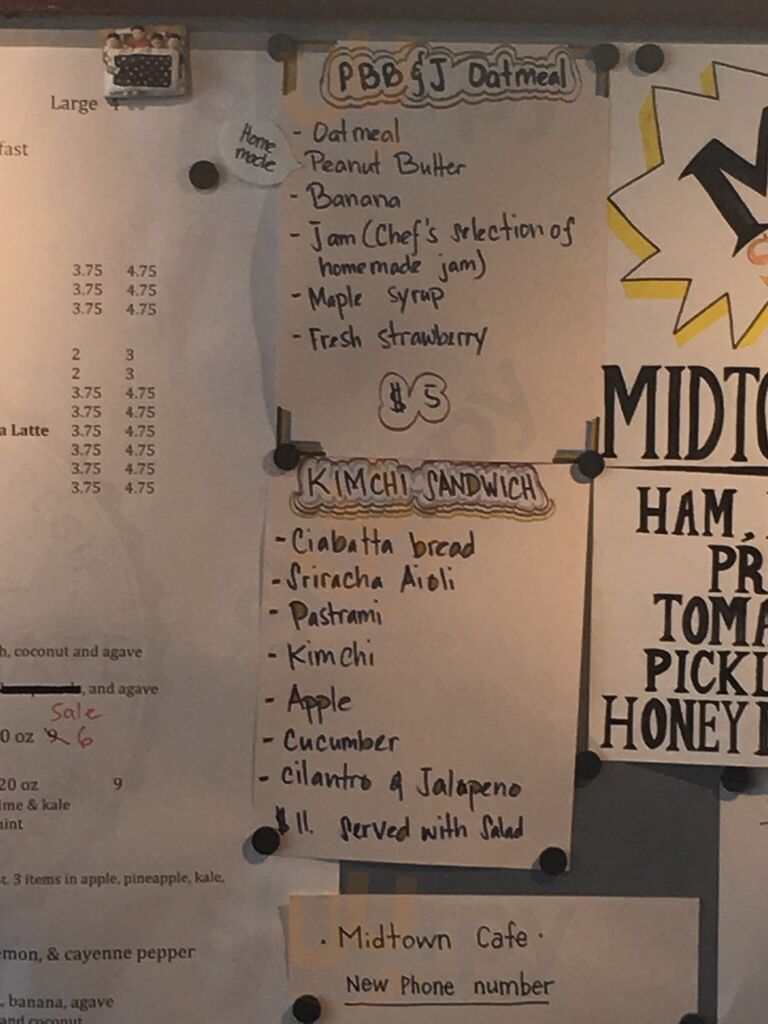 Large 4
fast
3.75 4.75
3.75 4.75
3.75 4.75
2 3
2 3
3.75 4.75
3.75 4.75
a Latte 3.75 4.75
3.75 4.75
3.75 4.75
3.75 4.75
h, coconut and agave
, and agave
Sale
0 oz 9 6
20 oz 9
me & kale
int
t. 3 items in apple, pineapple, kale,
mon, & cayenne pepper
, banana, agave
and coconut
PBB & J Oatmeal
Home made
- Oatmeal
- Peanut Butter
- Banana
- Jam (Chef's selection of
homemade jam)
- Maple syrup
- Fresh strawberry
$5
KIMCHI SANDWICH
- Ciabatta bread
- Sriracha Aioli
- Pastrami
- Kimchi
- Apple
- Cucumber
- cilantro & Jalapeno
$11. Served with Salad
· Midtown Cafe ·
New Phone number
M
MIDTO
HAM,
PR
TOMA
PICKL
HONEY